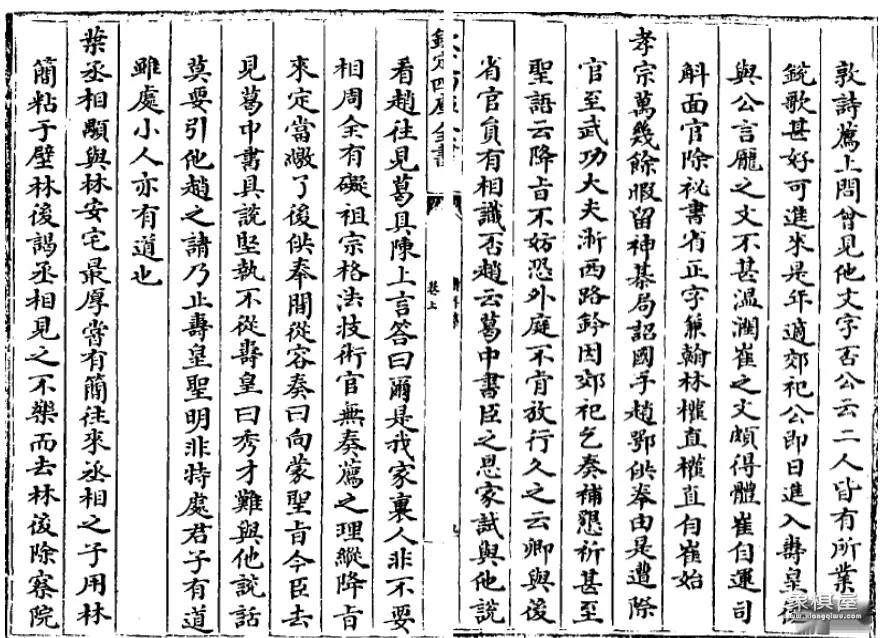 敦詩薦上問曾見他文字否公云二人皆有所業
鐃歌甚好可進來是年適郊祀公即日進入壽皇
與公言龎之文不甚温潤崔之文頗得體崔自運司
斛面官除祕書省正字兼翰林權直權直自崔始
孝宗萬幾餘暇留神棊局詔國手趙鄂供奉由是遭際
官至武功大夫浙西路鈐因郊祀乞奏補懇祈甚至
聖語云降旨不妨恐外庭不肯放行久之云卿與後
省官員有相識否趙云葛中書臣之恩家試與他說
欽定四庫全書
卷上
看趙往見葛具陳上言答曰爾是我家裏人非不要
相周全有礙祖宗格法技術官無奏薦之理縱降旨
來定當繳了後供奉間從容奏曰向蒙聖旨今臣去
見葛中書具說堅執不從壽皇曰秀才難與他說話
莫要引他趙之請乃止壽皇聖明非特處君子有道
雖處小人亦有道也
葉丞相顒與林安宅最厚嘗有簡往來丞相之子用林
簡粘于壁林後謁丞相見之不樂而去林後除察院
象棋屋
www.xiangqiwu.com